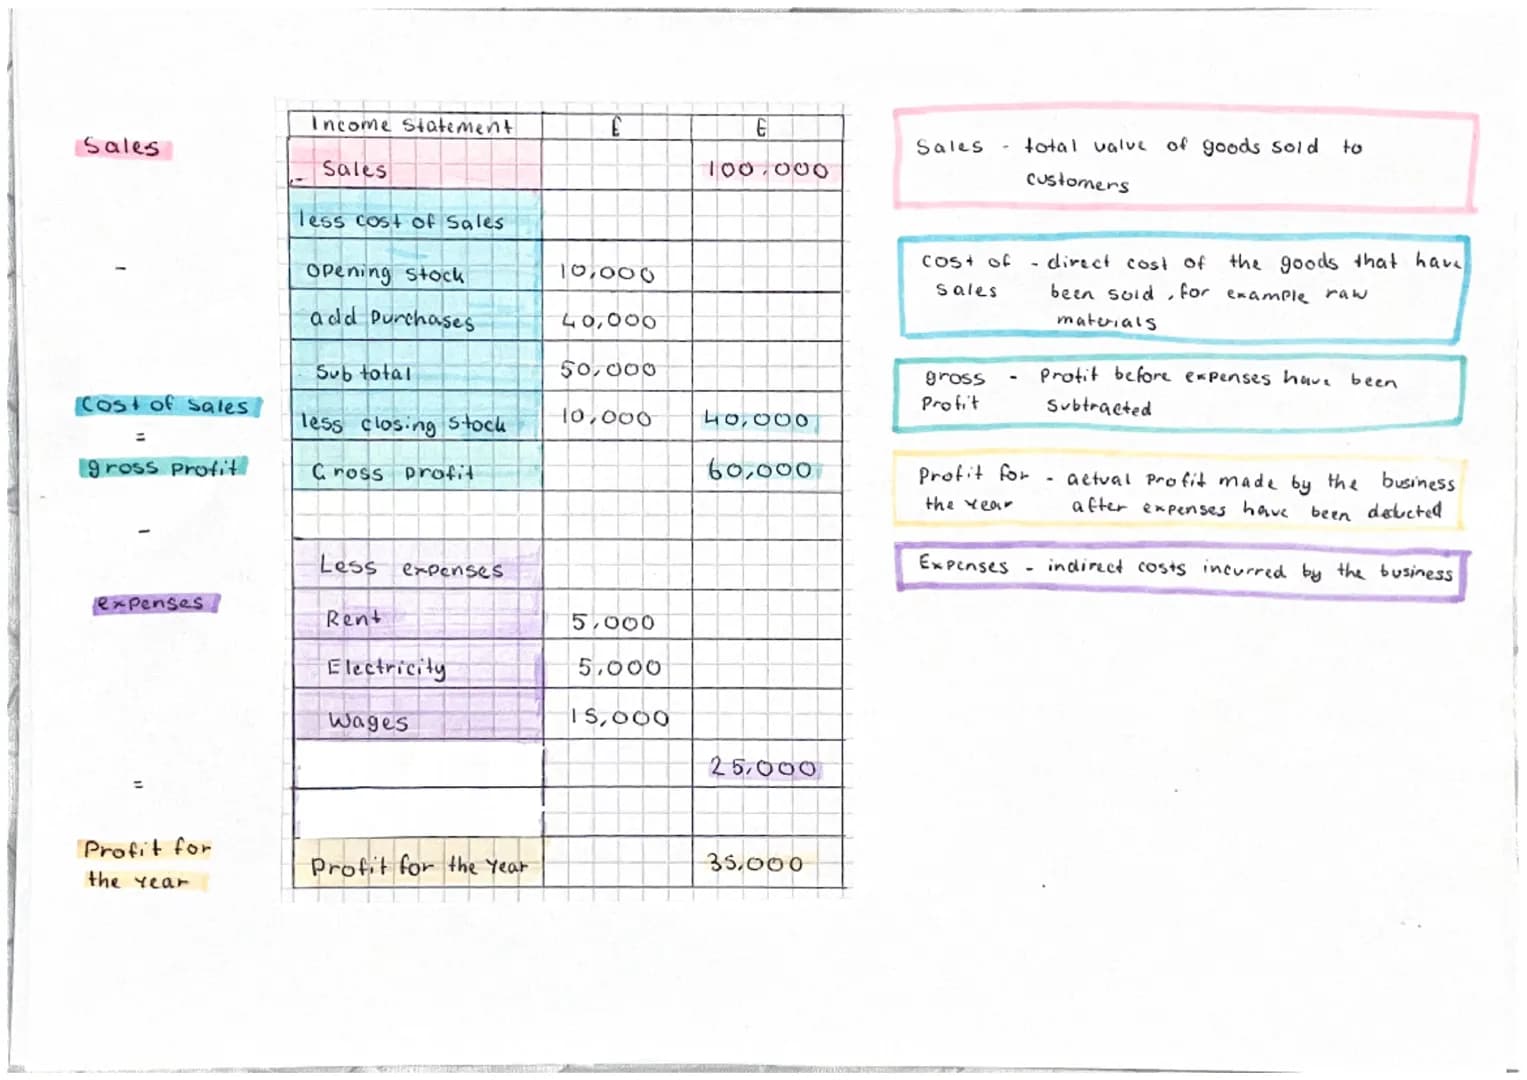 Sales
-
Cost of Sales
=
gross Profit
-
expenses
=
Profit for
the Year
Income Statement £ £
Sales 100,000
less cost of Sales
opening stock 10,000
add Purchases 40,000
Sub total 50,000
less closing Stock 10,000 40,000
Gross profit 60,000
Less expenses
Rent 5,000
Electricity 5,000
Wages 15,000
25,000
Profit for the Year 35,000
Sales - total value of goods sold to
customers
cost of - direct cost of the goods that have
sales been sold, for example raw
materials
gross - Profit before expenses have been
Profit Subtracted
Profit for - actual Profit made by the business
the Year after expenses have been deducted
Expenses - indirect costs incurred by the business